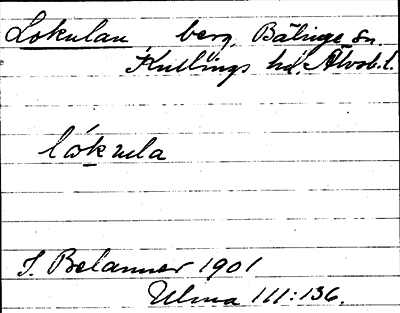 Lokulan berg, Bälinge sn
Kullings hd. Älvsb. l.
lókula
J. Belanner 1901
Ulma 111:136.